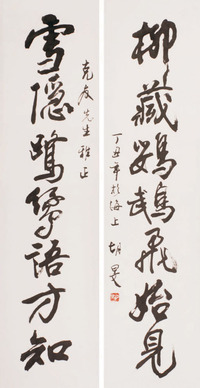 柳藏鸚鵡飛始見
丁丑年於海上 胡旻
克友先生雅正
雪隱鷺鷥語方知